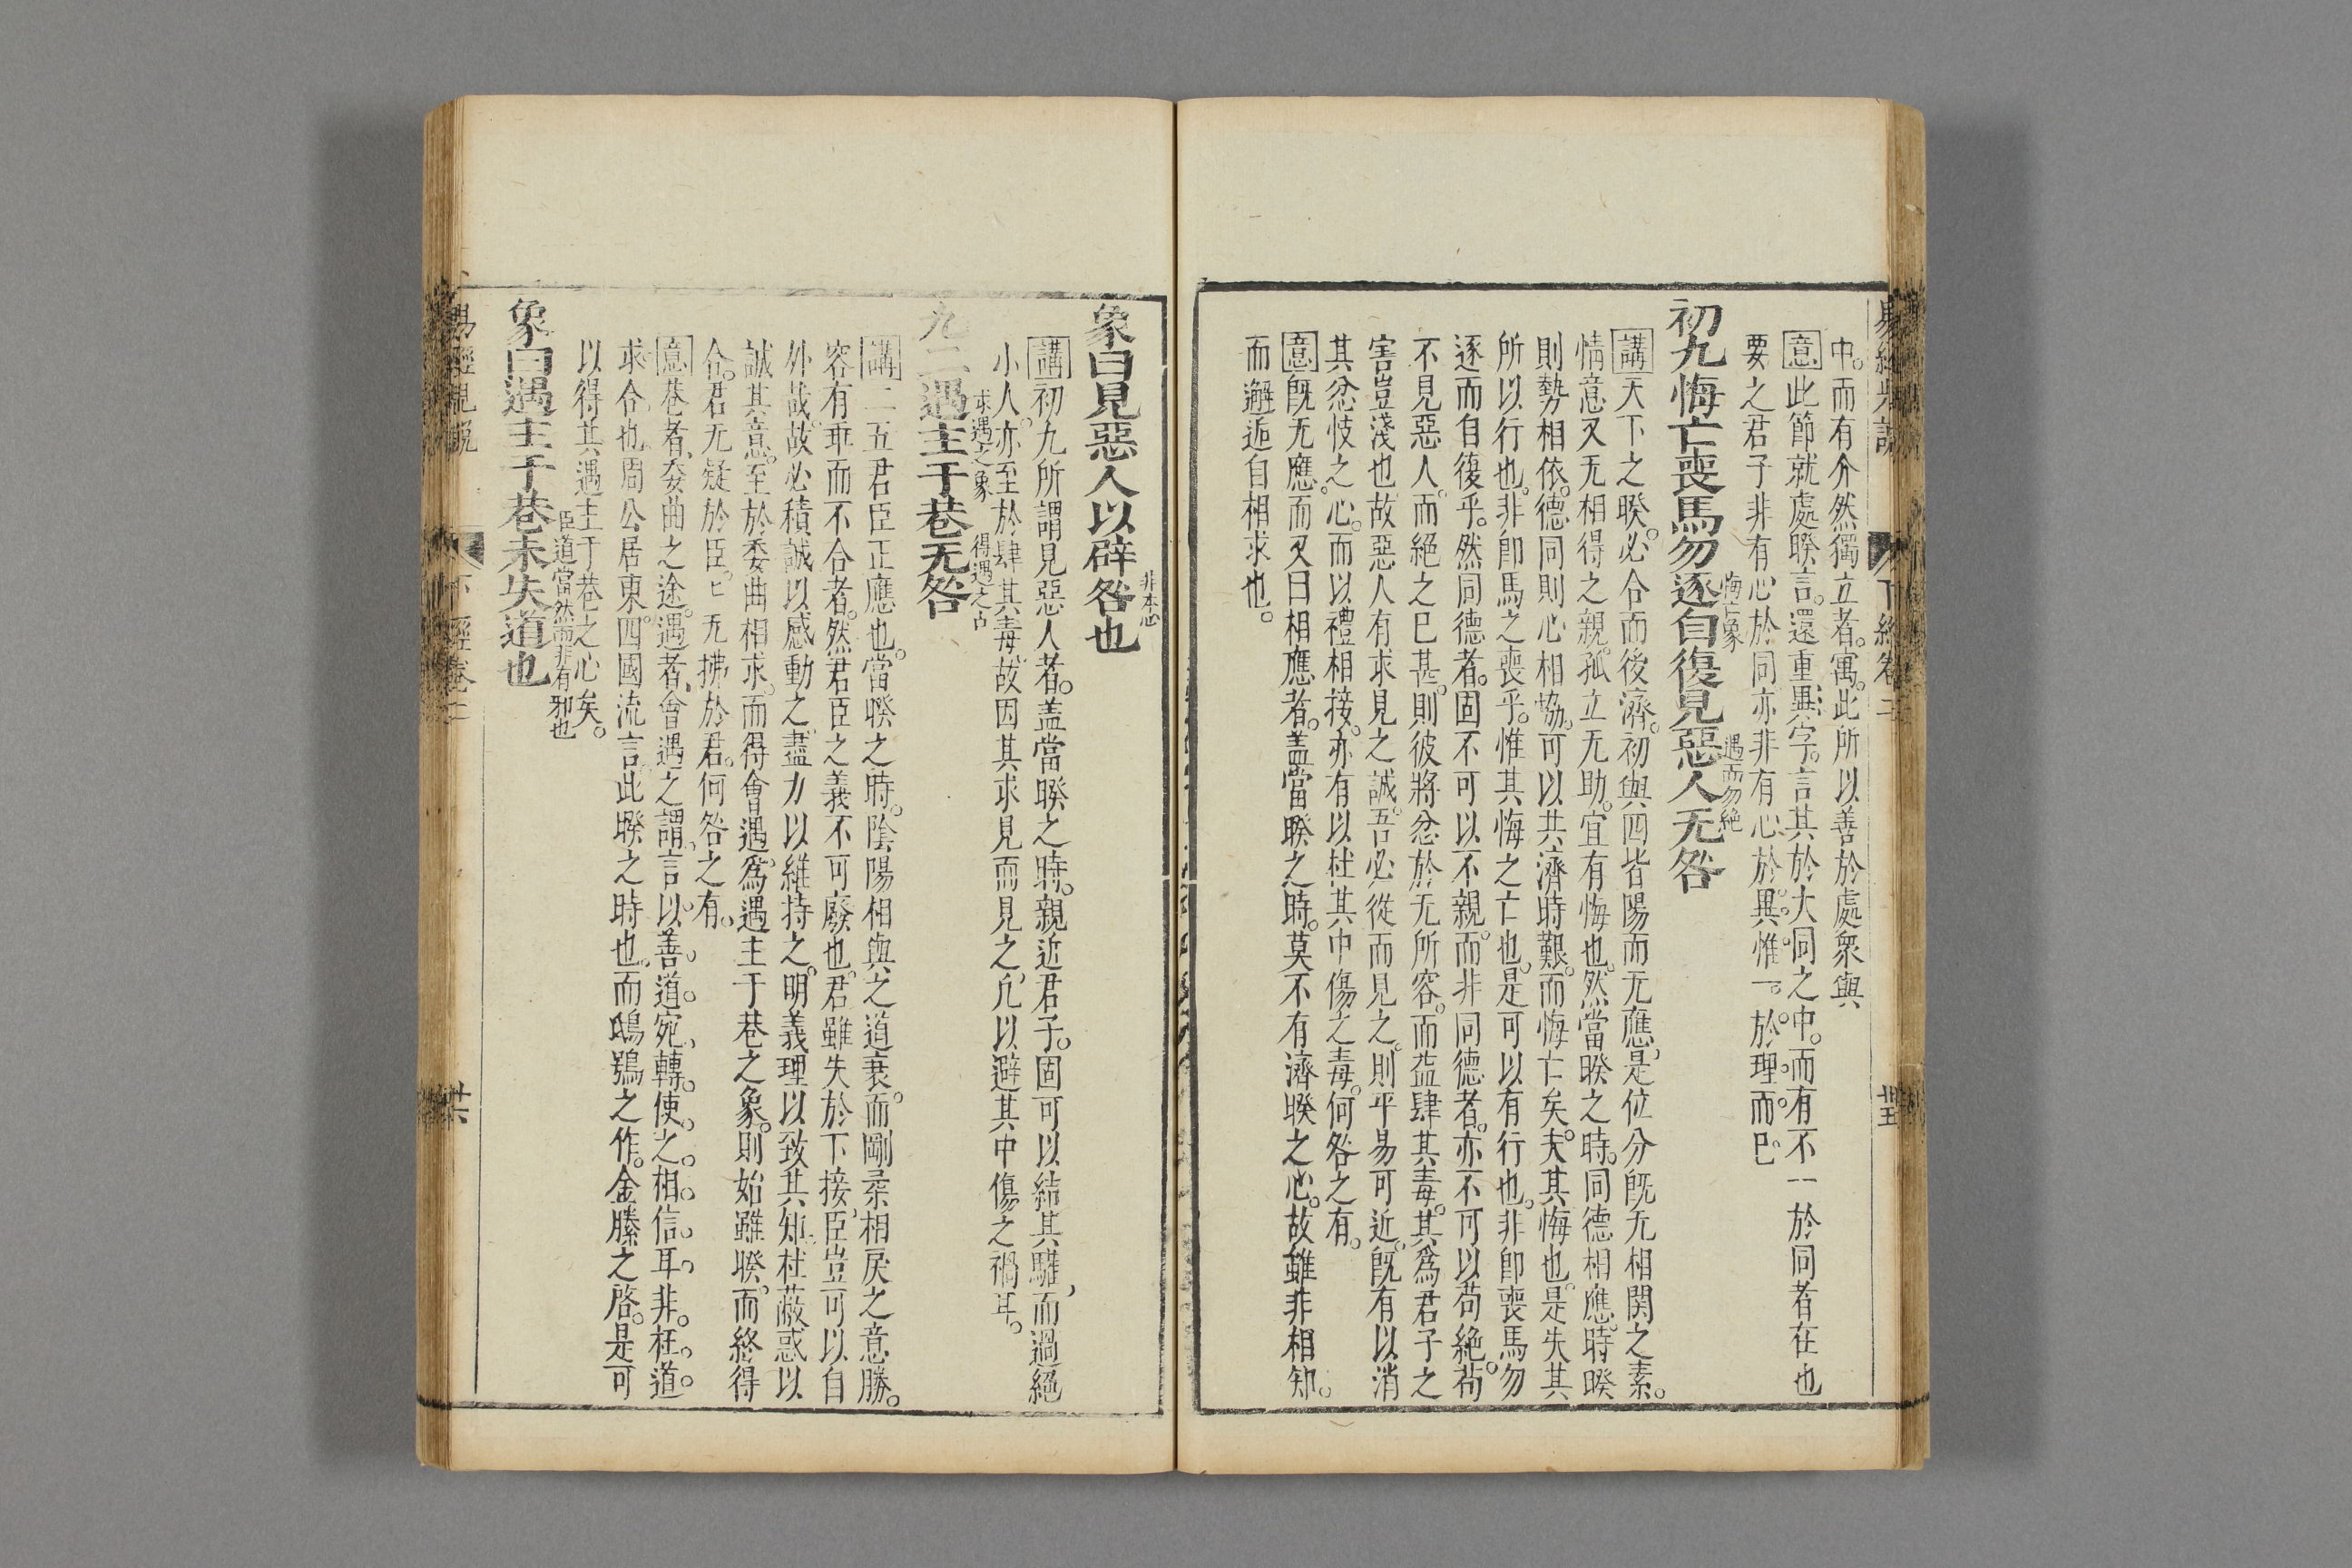 易經
下經卷二
卅五
中。而有介然獨立者。寓。此所以善於處衆與
意此節就處睽言。還重異字。言其於大同之中。而有不一於同者在也
要之君子非有心於同亦非有心於異。惟一於理而已
初九悔亡喪馬勿逐自復見惡人无咎
悔亡象
遇而勿絕
講天下之睽。必合而後濟。初與四皆陽而无應。是位分旣无相関之素。
情意又无相得之親。孤立无助。宜有悔也。然當睽之時。同德相應。時睽
則勢相依。德同則心相協。可以共濟時艱。而悔亡矣。夫其悔也。是失其
所以行也。非卽馬之喪乎。惟其悔之亡也。是可以有行也。非卽喪馬勿
逐而自復乎。然同德者。固不可以不親。而非同德者。亦不可以苟絕。苟
不見惡人。而絕之已甚。則彼將忿於无所容。而益肆其毒。其爲君子之
害豈淺也。故惡人有求見之誠。吾必從而見之。則平易可近。旣有以消
其忿忮之心。而以禮相接。亦有以杜其中傷之毒。何咎之有。
意旣无應。而又曰相應者。蓋當睽之時。莫不有濟睽之心。故雖非相知。
而邂逅自相求也。
象曰見惡人以辟咎也
非本心
講初九所謂見惡人者。蓋當睽之時。親近君子。固可以結其驩。而過絕
小人。亦至於肆其毒。故因其求見而見之。凢以避其中傷之禍耳。
九二遇主于巷无咎
求遇之象
得遇之占
講二五君臣正應也。當睽之時。陰陽相與之道衰。而剛柔相戾之意勝。
容有乖而不合者。然君臣之義不可廢也。君雖失於下接。臣豈可以自
外哉。故必積誠以感動之。盡力以維持之。明義理以致其知。杜蔽惑以
誠其意。至於委曲相求。而得會遇。爲遇主于巷之象。則始雖睽。而終得
合。君无疑於臣。臣无拂於君。何咎之有。
意巷者。委曲之途。遇者。會遇之謂。言以善道宛轉。使之相信耳。非枉道
求合也。周公居東。四國流言。此睽之時也。而鴟鴞之作。金縢之啓。是可
以得其遇主于巷之心矣。
象曰遇主于巷未失道也
臣道當然而非有邪也
易經
下經卷二
卅六